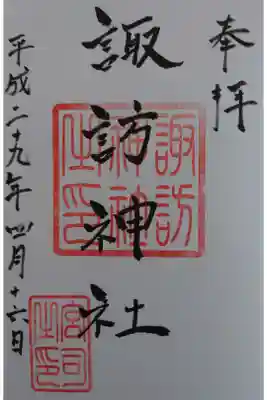 奉拝
諏訪神社
平成二十九年四月十六日
諏訪
神社
之印
宮司
之印